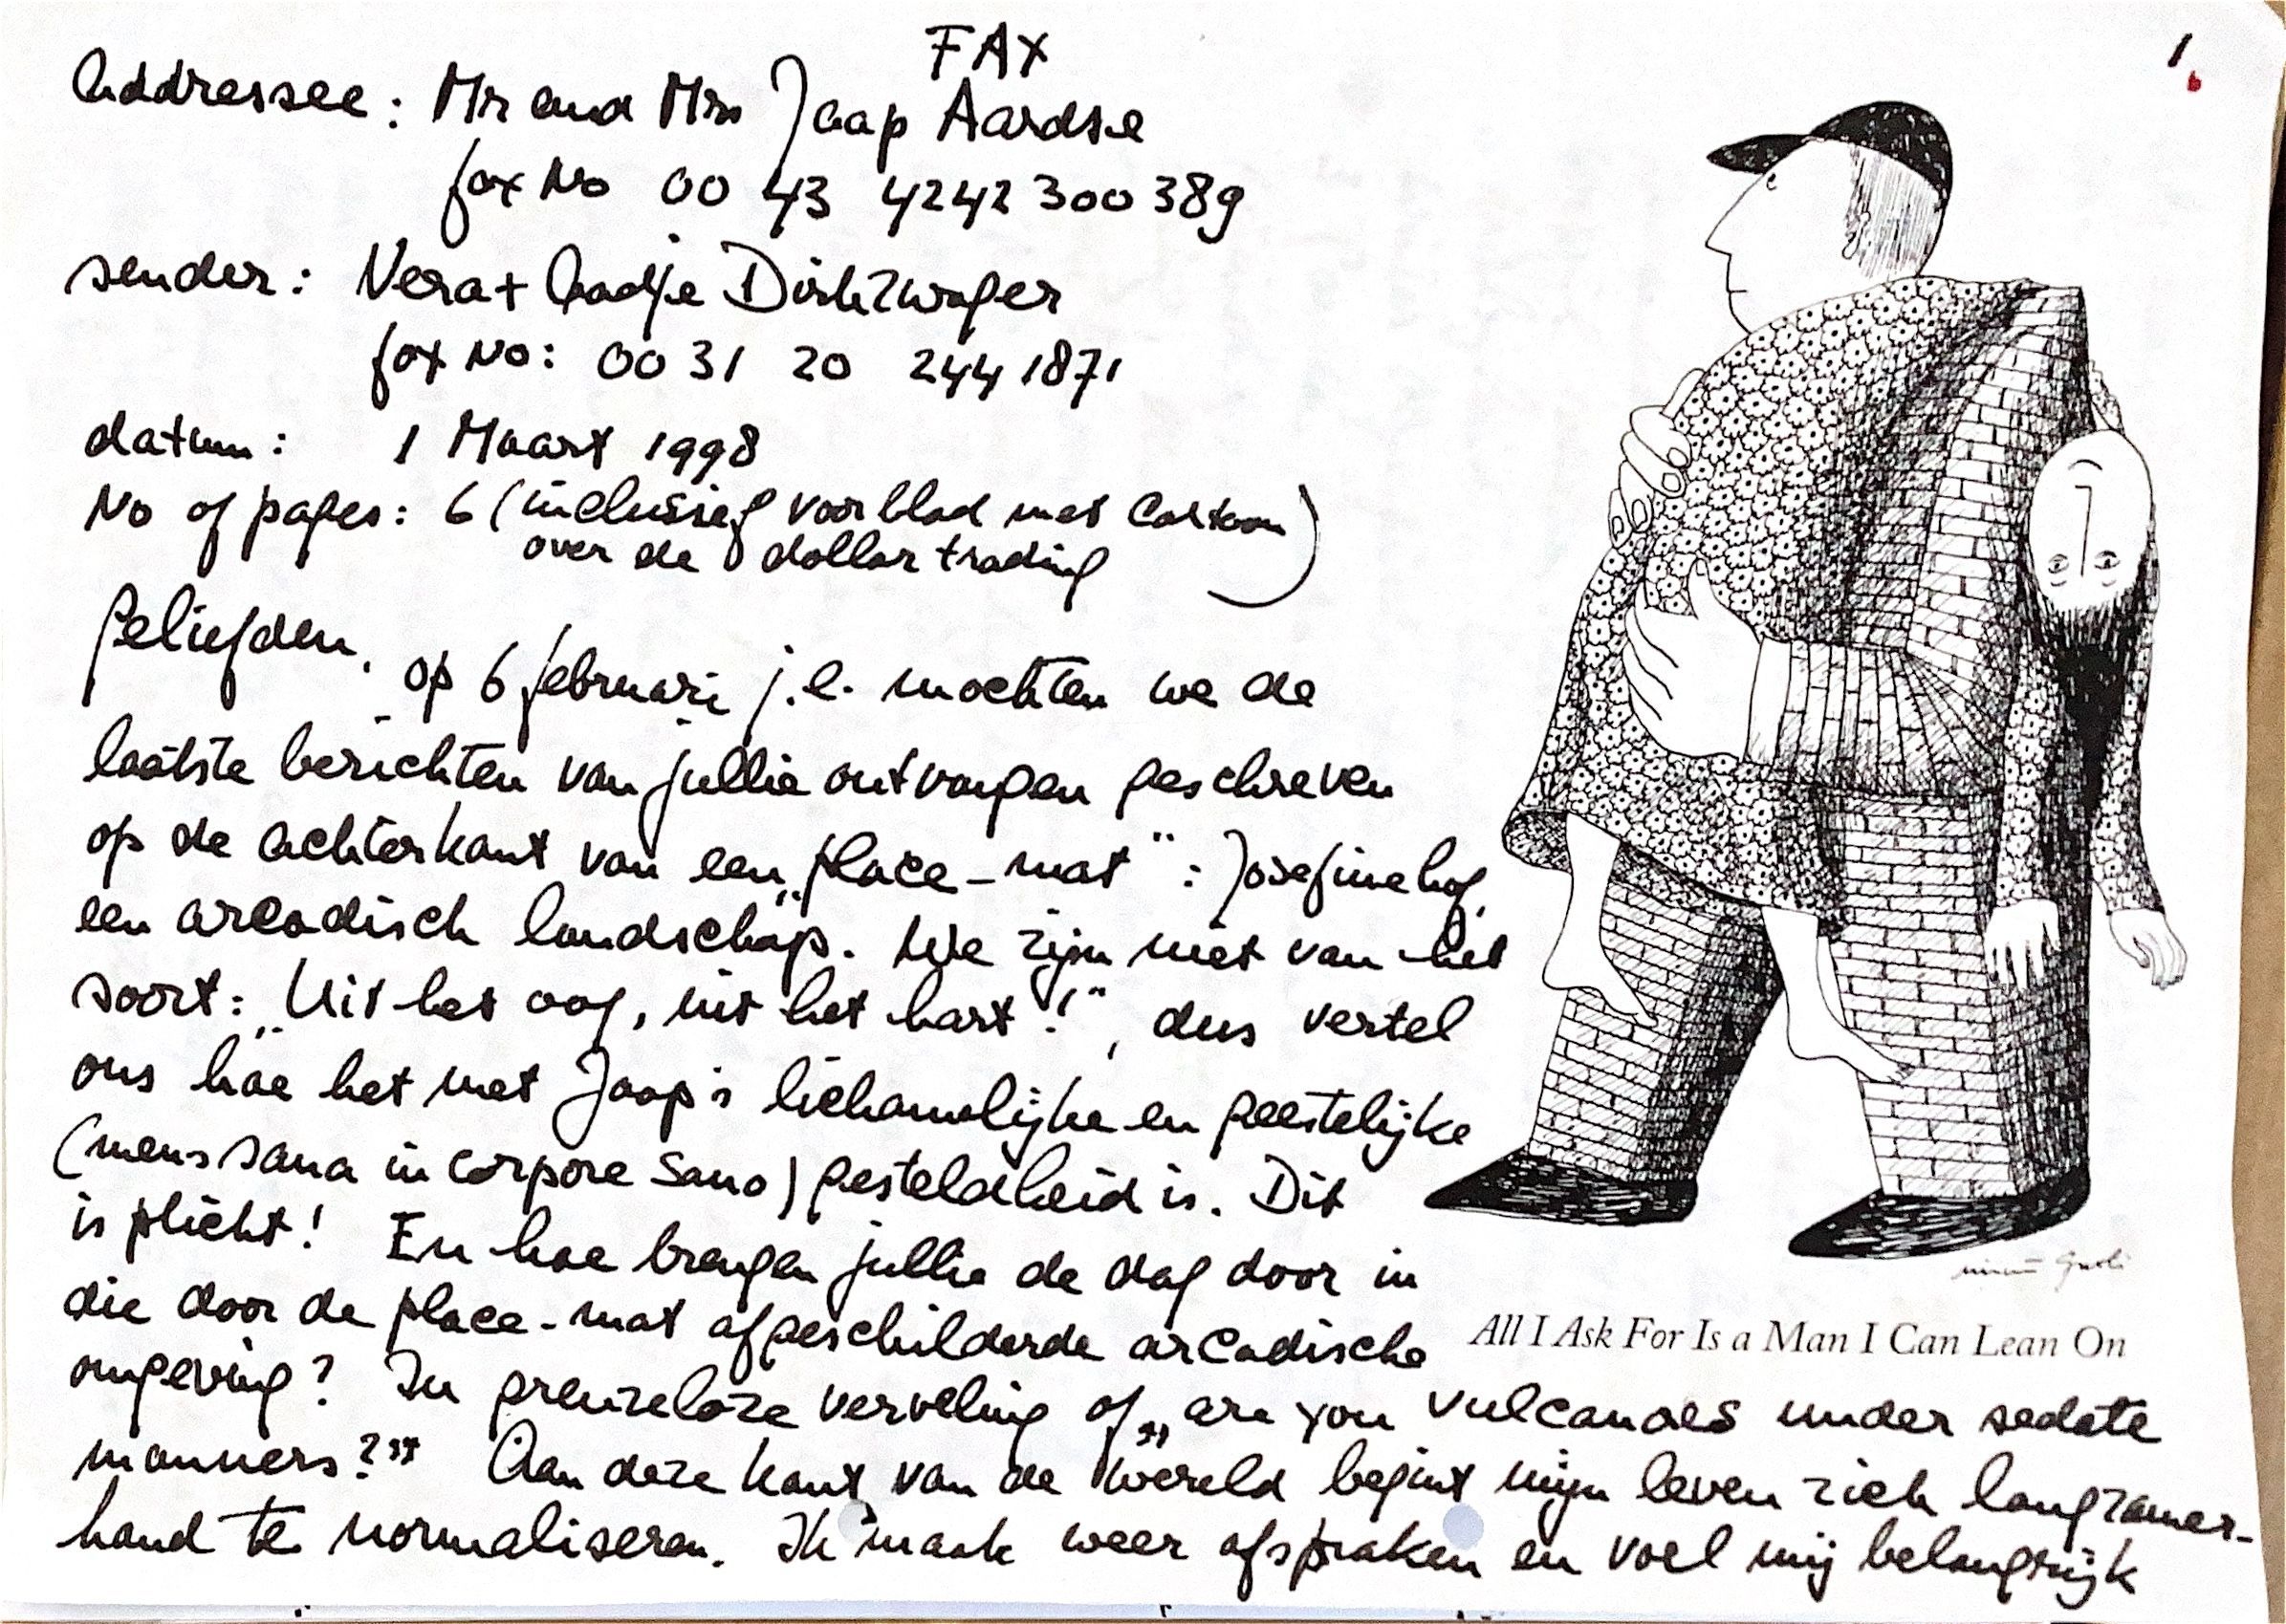 FAX
1.
Addressee: Mr and Mrs Jaap Aardse
fax No 00 43 4242 300 389
sender: Vera + Aadje Dirkzwager
fax No: 00 31 20 244 1871
datum: 1 Maart 1998
No of pages: 6 (inclusief voorblad met cartoon
over de dollar trading)
Geliefden, op 6 februari j.l. mochten we de
laatste berichten van jullie ontvangen geschreven
op de achterkant van een „place-mat": Josefinehof,
een arcadisch landschap. We zijn niet van het
soort: „Uit het oog, uit het hart!", dus vertel
ons hoe het met Jaap's lichamelijke en geestelijke
(mens sana in corpore sano) gesteldheid is. Dit
is plicht! En hoe brengen jullie de dag door in
die door de place-mat afgeschilderde arcadische
omgeving? In grenzeloze verveling of „are you vulcanoes under sedate
manners?" Aan deze kant van de wereld begint mijn leven zich langzamer-
hand te normaliseren. Ik maak weer afspraken en voel mij belangrijk
All I Ask For Is a Man I Can Lean On